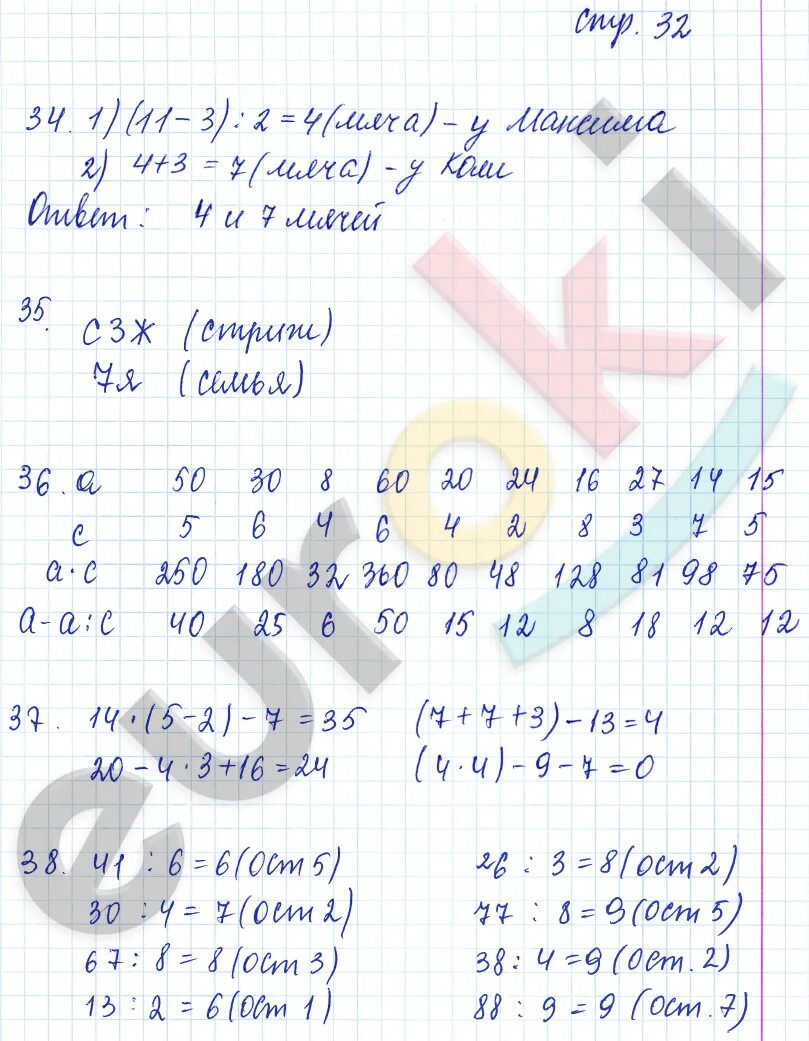 стр. 32
34. 1) (11-3):2=4(мяча)-у Максима
2) 4+3=7(мяча)-у Коли
Ответ: 4 и 7 мячей
35.
СЗЖ (стриж)
7я (семья)
36. a 50 30 8 60 20 24 16 27 14 15
c 5 6 4 6 4 2 8 3 7 5
a·c 250 180 32 360 80 48 128 81 98 75
a-a:c 40 25 6 50 15 12 8 18 12 12
37. 14·(5-2)-7=35 (7+7+3)-13=4
20-4·3+16=24 (4·4)-9-7=0
38. 41:6=6(ост 5) 26:3=8(ост 2)
30:4=7(ост 2) 77:8=9(ост 5)
67:8=8(ост 3) 38:4=9(ост. 2)
13:2=6(ост 1) 88:9=9(ост. 7)
euroki